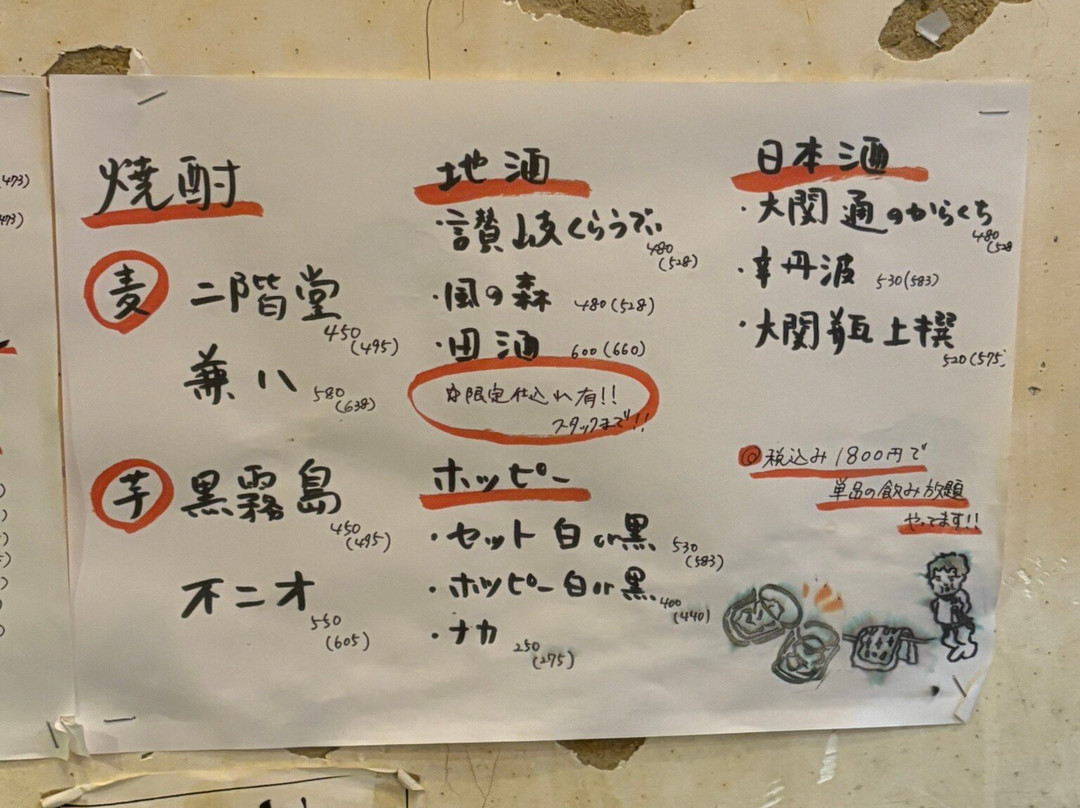 焼酎
麦 二階堂
450
(495)
兼八
580
(638)
芋 黒霧島
450
(495)
不二才
550
(605)
地酒
・讃岐くらうでぃ
480
(528)
・風の森 480(528)
・田酒 600(660)
限定仕込れ有!!
スタッフまで!!
ホッピー
・セット 白or黒 530
(583)
・ホッピー白or黒 400
(440)
・ナカ 250
(275)
日本酒
・大関 通のからくち
480
(528
・辛丹波 530(583)
・大関 瓶 上撰
520(575
◎税込み1800円で
単品の飲み放題
やってます!!
(473)
473)